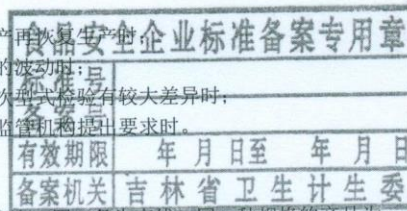 食品安全企业标准备案专用章
产再恢复生产时;
的波动时;
标准号
次型式检验有较大差异时;
备案号
监管机构提出要求时。
有效期限 年 月 日至 年 月 日
备案机关 吉林省卫生计生委